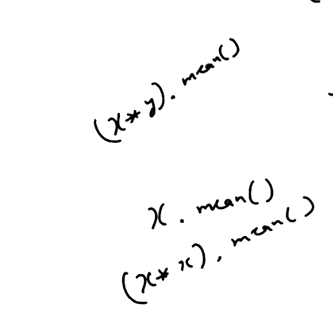 (x*y).mean()
x.mean()
(x*x).mean()